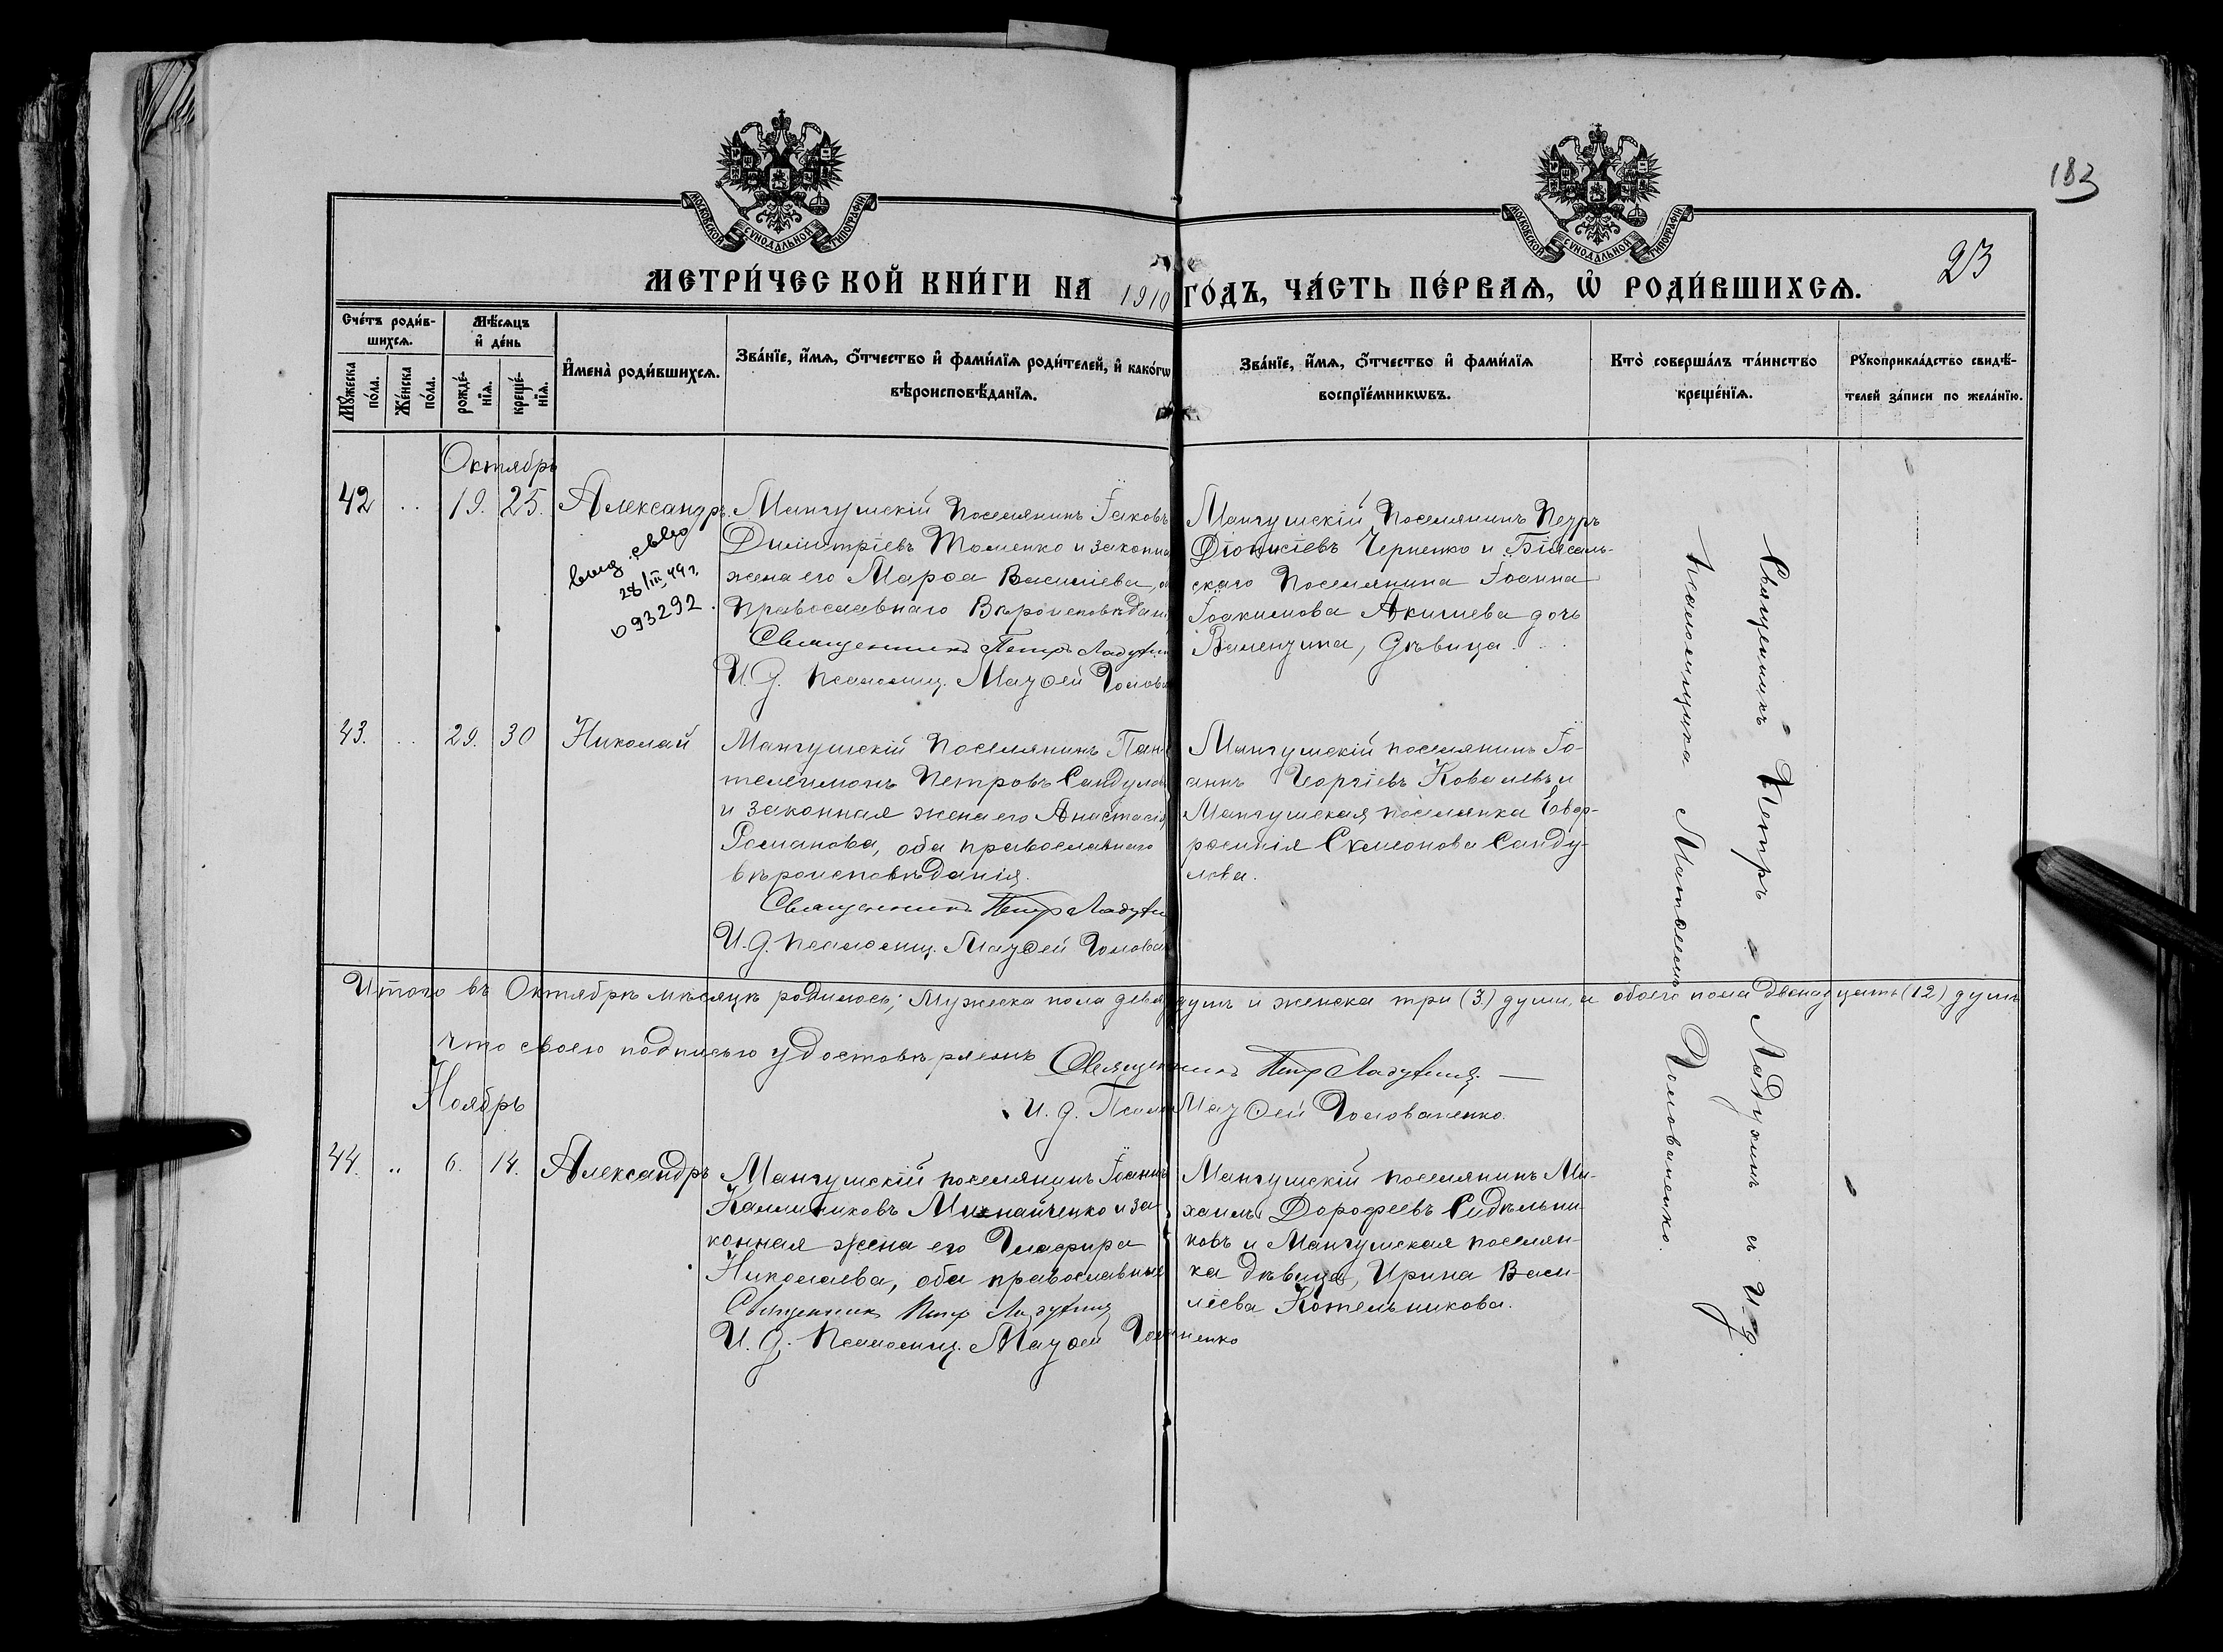 183
МОСКОВСКОЙ СУНОДАЛЬНОЙ ТИПОГРАФІИ
МОСКОВСКОЙ СУНОДАЛЬНОЙ ТИПОГРАФІИ
23
МЕТРИ́ЧЕСКОЙ КНИ́ГИ НА 1910 ГО́ДЪ, ЧА́СТЬ ПЕ́РВАѦ, Ѡ҆ РОДИ́ВШИХСѦ.
Сче́тъ роди́в-
шихсѧ.
Мꙋ́жеска по́ла.
Же́нска по́ла.
Мѣ́сѧцъ
и҆ де́нь
рожде́-
нїѧ.
креще́-
нїѧ.
И҆мена̀ роди́вшихсѧ.
Зва́нїе, и҆́мѧ, ѻ҆́тчество и҆ фами́лїѧ роди́телей, и҆ како́гѡ
вѣроисповѣ́данїѧ.
Зва́нїе, и҆́мѧ, ѻ҆́тчество и҆ фами́лїѧ
воспрїе́мникѡвъ.
Кто̀ соверша́лъ та́инство
креще́нїѧ.
Рꙋкоприкла́дство свидѣ́-
телей за́писи по жела́нїю.
Октябрь
42 .. 19. 25. Александръ.
выд. св-во
28/III 49 г.
093292.
Мангушскій поселянинъ Іаковъ
Димитріевъ Томенко и законна
жена его Марѳа Васильева, о
православнаго вѣроисповѣдані
Священникъ Петръ Ладухин
И. д. псаломщ. Матѳей Голова
Мангушскій поселянинъ Петръ
Діонисіевъ Черненко и Біясаль-
скаго поселянина Іоанна
Іоакимова Акишева дочь
Валентина, дѣвица.
43. .. 29. 30 Николай
Мангушскій поселянинъ Пан-
телеимонъ Петровъ Сандулов
и законная жена его Анастасія
Романова, оба православнаго
вѣроисповѣданія.
Священникъ Петръ Ладухин
И. д. псаломщ. Матѳей Голова
Мангушскій поселянинъ Іо-
аннъ Георгіевъ Ковалевъ и
Мангушская поселянка Евф-
росинія Симеонова Санду-
лова.
Священникъ Петръ Ладухинъ съ И. д.
псаломщика Матѳеемъ Голованенко.
Итого въ Октябрѣ мѣсяцѣ родилось; мужеска пола девя душъ и женска три (3) души, а обоего пола двенадцать (12) душъ
что своею подписью удостовѣряемъ Священникъ Петръ Ладухинъ. —
И. д. Псалом Матѳей Голованенко.
Ноябрь
44. .. 6. 14. Александръ
Мангушскій поселянинъ Іоаннъ
Каллиниковъ и за-
конная жена его Глафира
Николаева, оба православные
Священникъ Петръ Ладухинъ
И. д. псаломщ. Матѳей Голованенко
Мангушскій поселянинъ Ми-
хаилъ Дорофеевъ Сидѣльни-
ковъ и Мангушская поселян-
ка дѣвица, Ирина Васи-
ліева Котельникова.